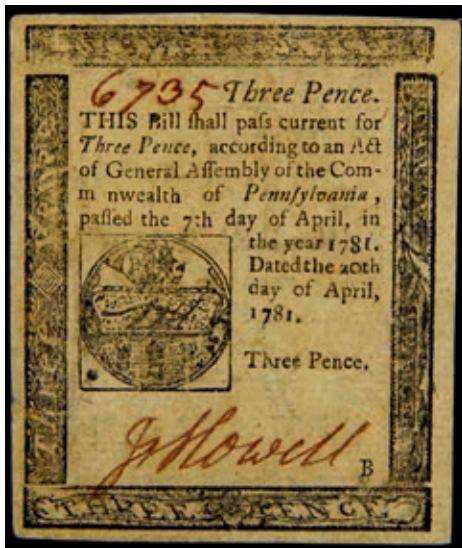 6735 Three Pence.
THIS Bill ſhall paſs current for
Three Pence, according to an Act
of General Aſſembly of the Com-
m nwealth of Pennſylvania,
paſſed the 7th day of April, in
the year 1781.
Dated the 20th
day of April,
1781.
Three Pence.
Js Howell
B
THREE PENCE